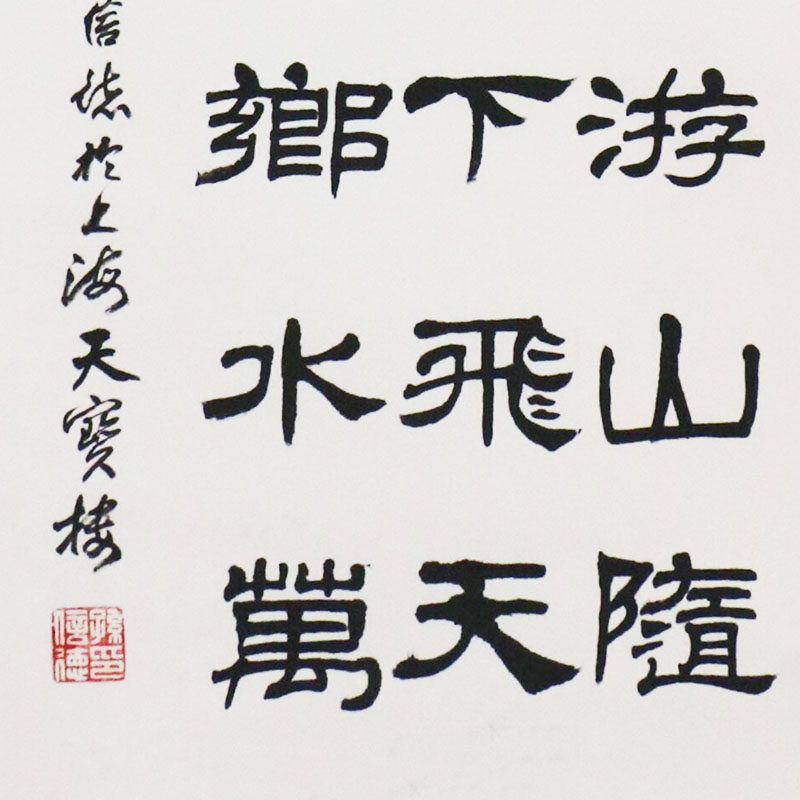 游山隨
下飛天
鄉水萬
信德於上海天寶樓
孫信德印